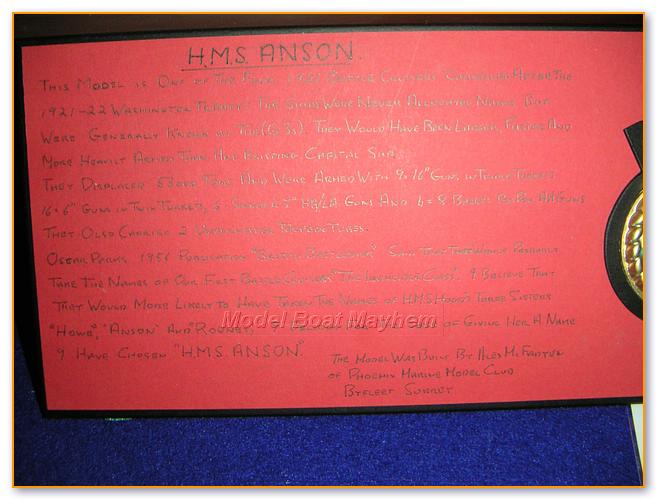 H.M.S. ANSON.
THIS MODEL IS ONE OF THE FOUR 1921 BATTLE CRUISERS CANCELLED AFTER THE
1921-22 WASHINGTON THE SHIPS WERE NEVER ALLOCATED NAMES BUT
WERE GENERALLY KNOWN AS THE (G.3s). THEY WOULD HAVE BEEN LARGER, FASTER AND
MORE HEAVILY ARMED THAN ANY EXISTING CAPITAL SHIP.
THEY DISPLACED TONS AND WERE ARMED WITH 9x16" GUNS IN TRIPLE TURRETS
16x6" GUNS IN TWIN TURRETS, 6 4.7" HA/LA GUNS AND 4x8 BARREL AA GUNS
THEY CARRIED 2 TORPEDO TUBES.
OSCAR PARKS 1956 PUBLICATION "BRITISH BATTLESHIPS" SAYS THAT THEY WOULD PROBABLY
TAKE THE NAMES OF OUR FIRST BATTLE CRUISERS "THE CLASS". I BELIEVE THAT
THEY WOULD MORE LIKELY TO HAVE TAKEN THE NAMES OF H.M.S HOOD'S THREE SISTERS
"HOWE", "ANSON" AND "RODNEY". OF GIVING HER A NAME
I HAVE CHOSEN "H.M.S. ANSON."
THE MODEL WAS BUILT BY
OF PHOENIX MARINE MODEL CLUB
BYFLEET SURREY
Model Boat Mayhem